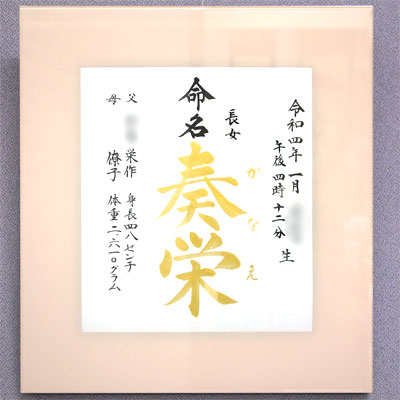 令和四年一月
午後四時十二分
生
長女
命名
奏栄
かなえ
父
栄作
母
僚子
身長四八センチ
体重二、六一〇グラム